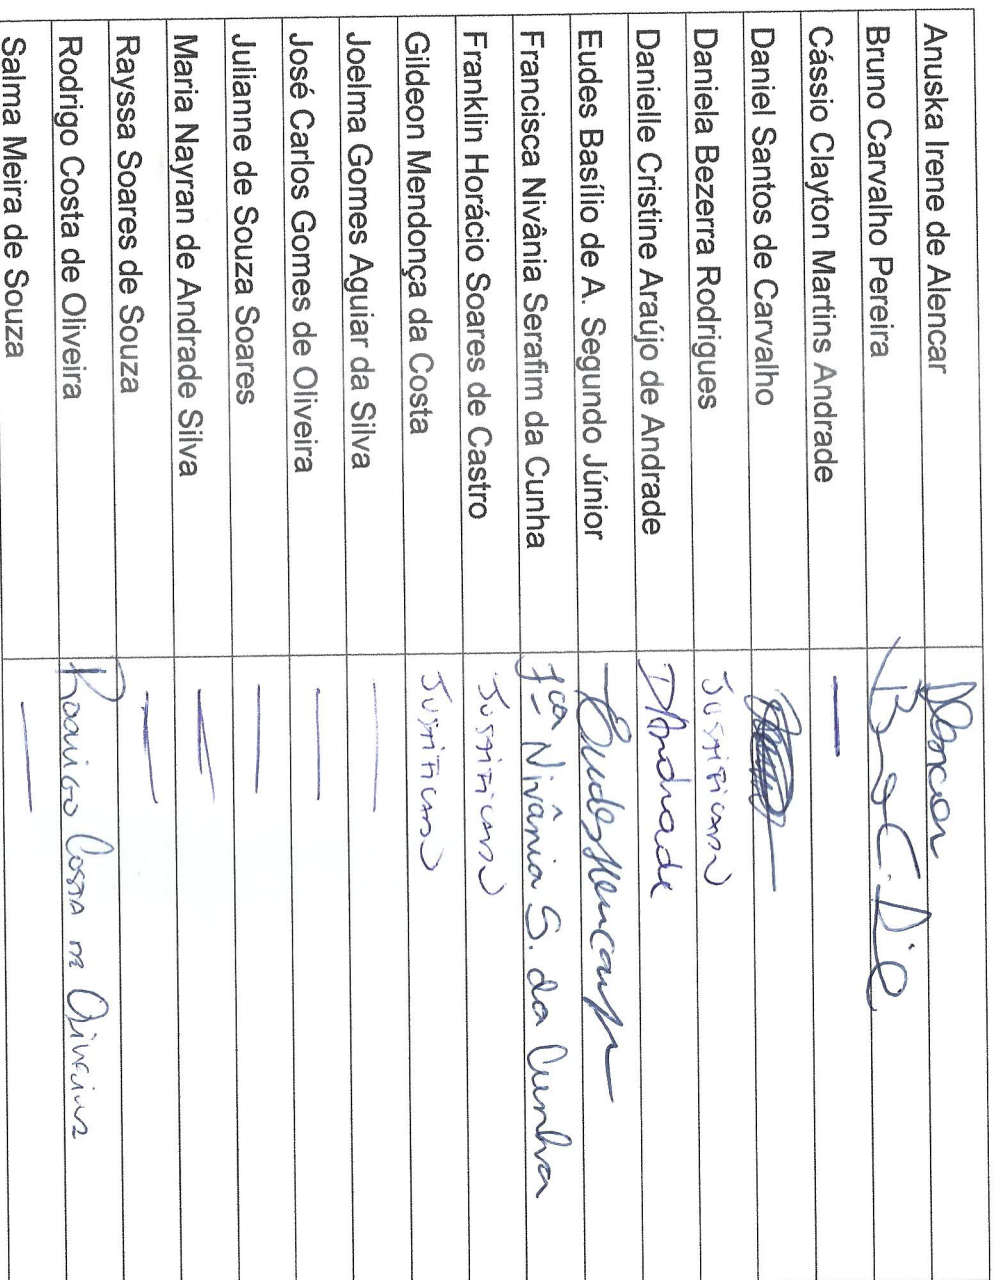 Anuska Irene de Alencar
Bruno Carvalho Pereira
Cássio Clayton Martins Andrade
Daniel Santos de Carvalho
Daniela Bezerra Rodrigues JUSTIFICADO
Danielle Cristine Araújo de Andrade DAndrade
Eudes Basílio de A. Segundo Júnior
Francisca Nivânia Serafim da Cunha Fca Nivânia S. da Cunha
Franklin Horácio Soares de Castro JUSTIFICADO
Gildeon Mendonça da Costa JUSTIFICADO
Joelma Gomes Aguiar da Silva
José Carlos Gomes de Oliveira
Julianne de Souza Soares
Maria Nayran de Andrade Silva
Rayssa Soares de Souza
Rodrigo Costa de Oliveira Rodrigo Costa de Oliveira
Salma Meira de Souza